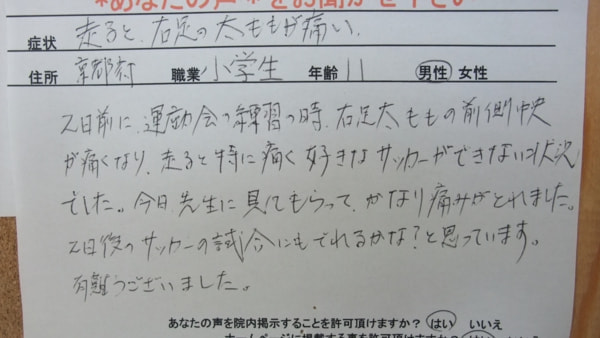 "あなたの声"をお聞かせ下さい
症状 走ると、右足の太ももが痛い。
住所 京都府 職業 小学生 年齢 11 男性 女性
2日前に、運動会の練習の時、右足太ももの前側中央
が痛くなり、走ると特に痛く好きなサッカーができない状況
でした。今日先生に見てもらって、かなり痛みがとれました。
2日後のサッカーの試合にもでれるかな?と思っています。
有難うございました。
あなたの声を院内掲示することを許可頂けますか? はい いいえ
ホームページに掲載する事を許可頂けますか? はい